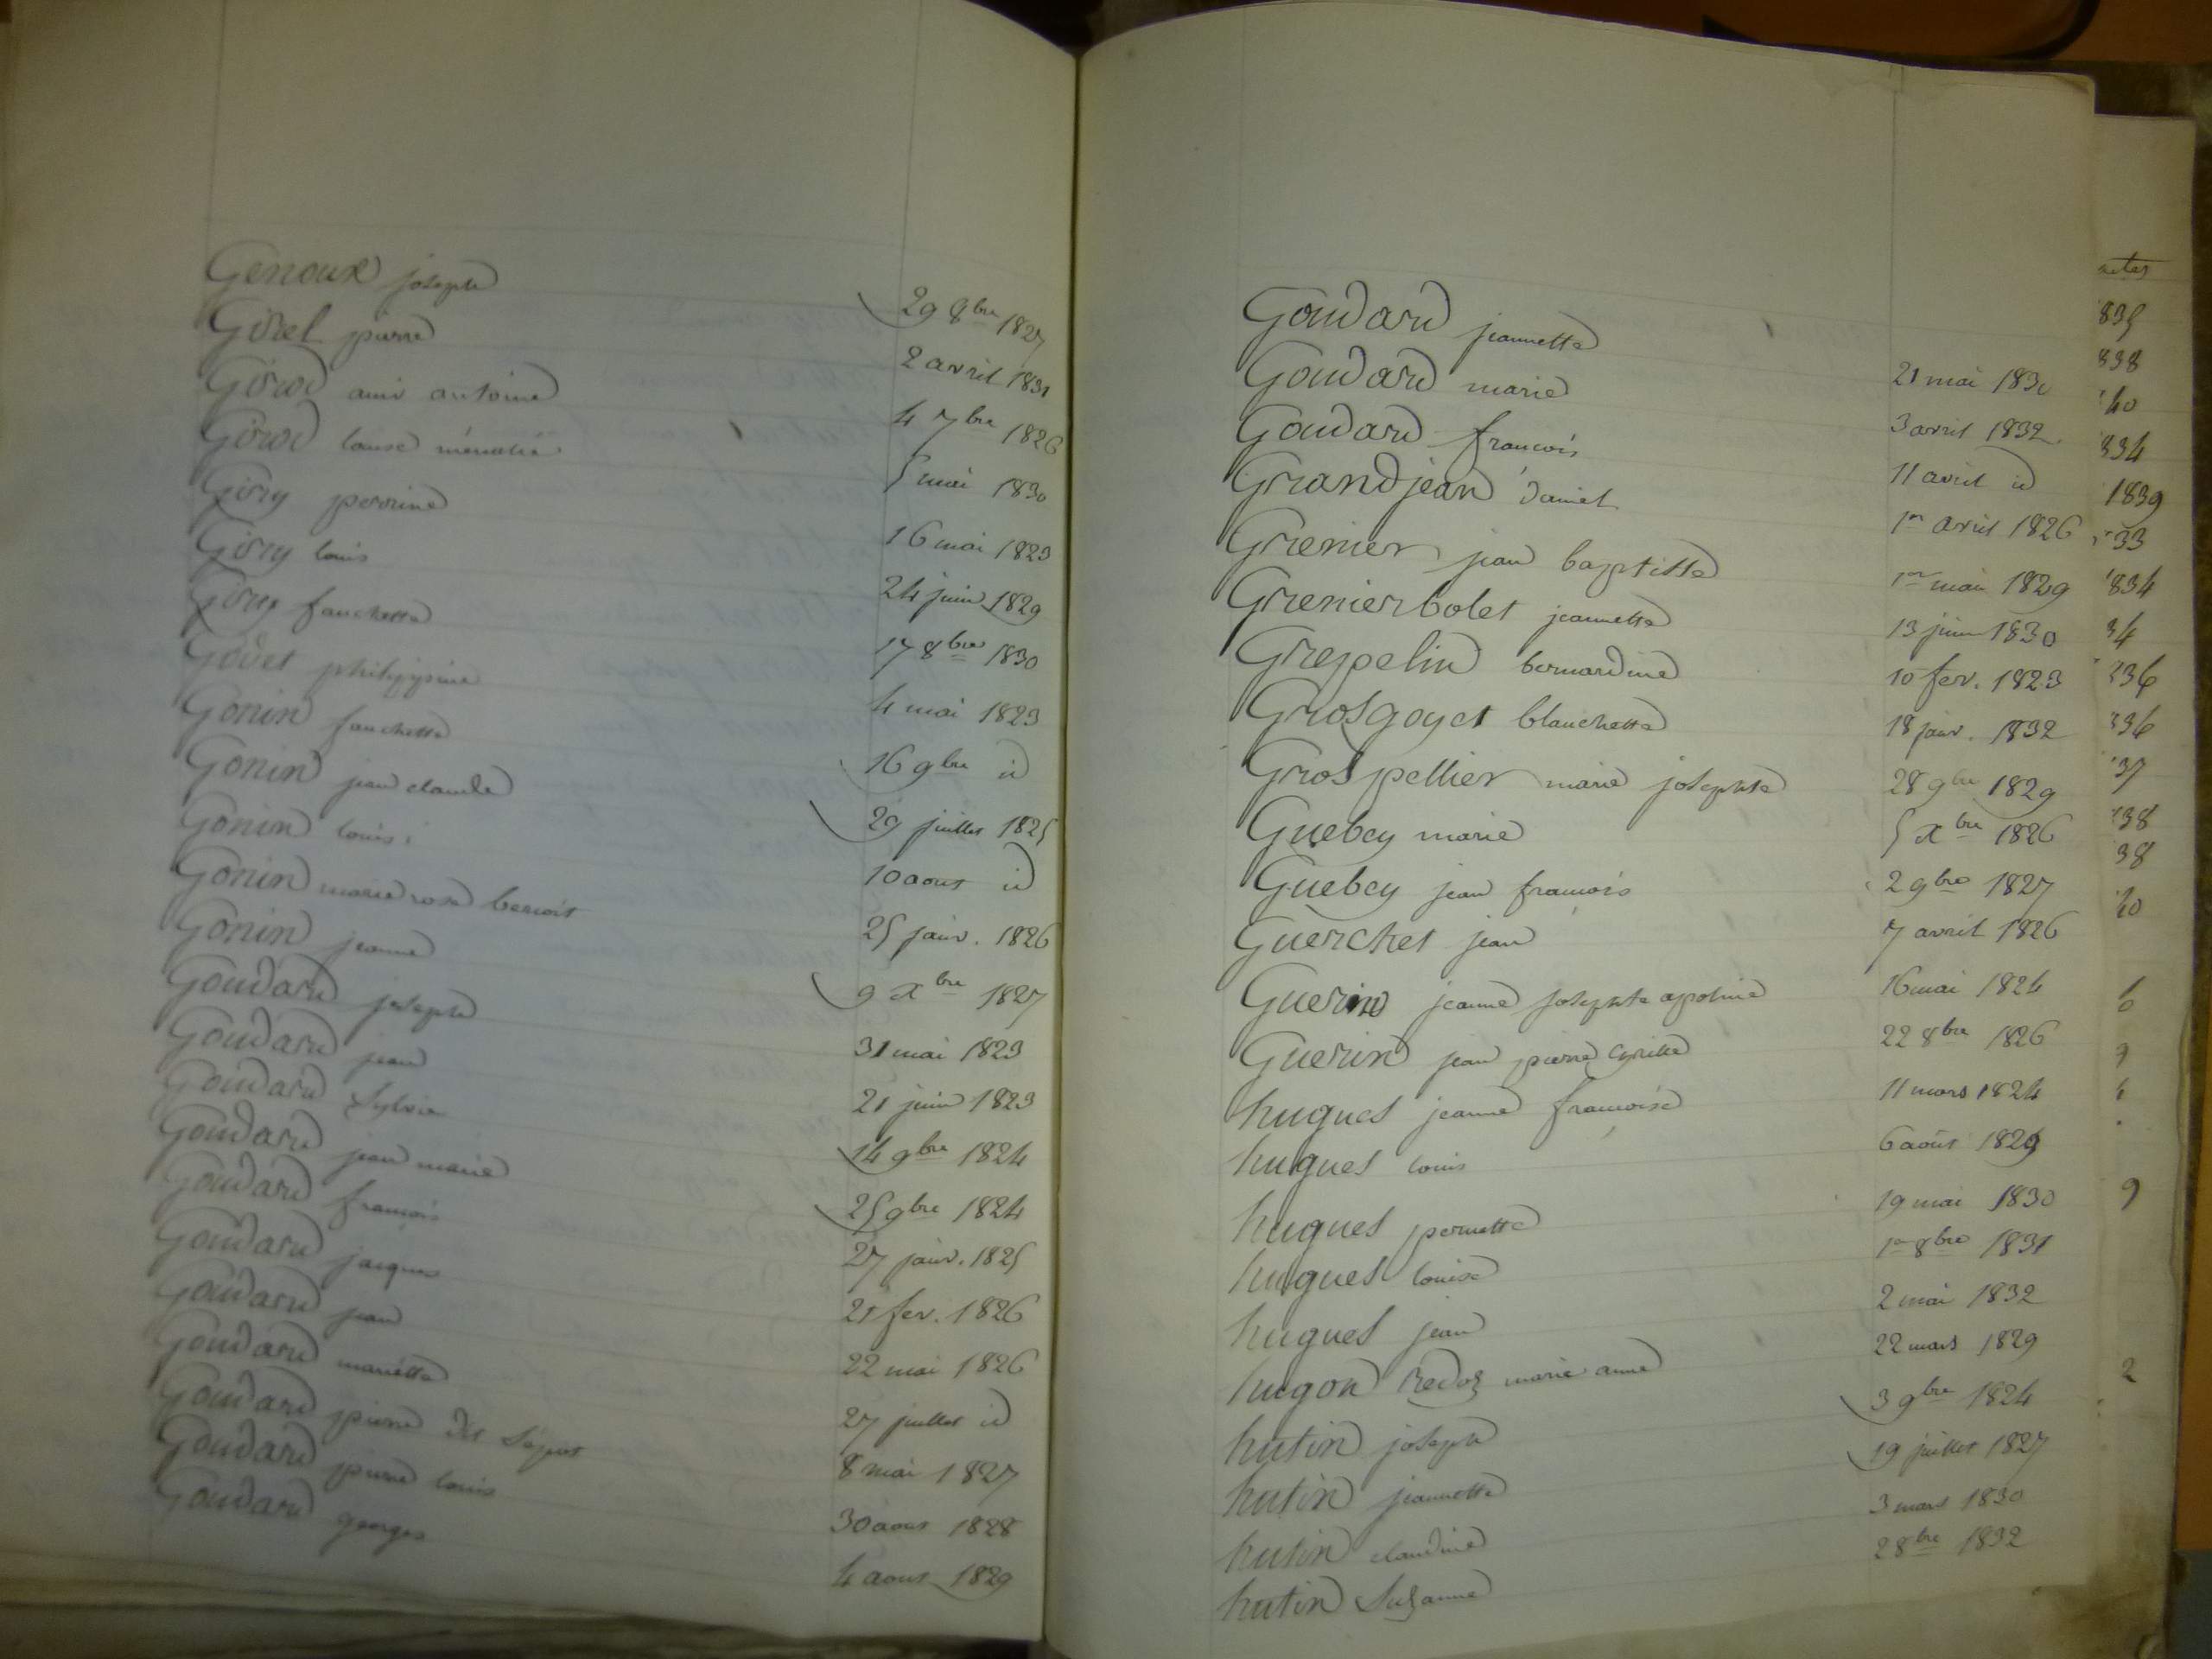 Genoux joseph 29 8bre 1827
Girel pierre 2 avril 1831
Girod ami antoine 4 7bre 1826
Girod louise 5 mai 1830
Giry perrine 16 mai 1823
Giry louis 24 juin 1829
Giry fanchette 17 8bre 1830
Goüet philippine 4 mai 1823
Gonin fanchette 16 9bre id
Gonin jean claude 29 juillet 1825
Gonin louis 10 aout id
Gonin marie rose benoit 25 janv. 1826
Gonin jeanne 9 Xbre 1827
Goudard joseph 31 mai 1823
Goudard jean 21 juin 1823
Goudard Sylvie 14 9bre 1824
Goudard jean marie 25 9bre 1824
Goudard francois 27 janv. 1825
Goudard jacques 21 fev. 1826
Goudard jean 22 mai 1826
Goudard mariette 27 juillet id
Goudard pierre dit 8 mai 1827
Goudard pierre louis 30 aout 1828
Goudard georges 4 aout 1829
Goudard jeannette 21 mai 1830
Goudard marie 3 avril 1832
Goudard francois 11 avril id
Grandjean daniel 1er avril 1826
Grenier jean baptiste 1er mai 1829
Grenierbolet jeannette 13 juin 1830
Grepelin bernardine 10 fev. 1823
Grosgoyet blanchette 18 janv. 1832
Grospellier marie josephte 28 9bre 1829
Guebey marie 5 Xbre 1826
Guebey jean francois 2 9bre 1827
Guerchet jean 7 avril 1826
Guerin jeanne josephte apoline 16 mai 1824
Guerin jean pierre Cyrille 22 8bre 1826
hugues jeanne francoise 11 mars 1824
hugues louis 6 août 1829
hugues pernette 19 mai 1830
hugues louise 1er 8bre 1831
hugues jean 2 mai 1832
hugon redoz marie anne 22 mars 1829
hutin joseph 3 9bre 1824
hutin jeannette 19 juillet 1827
hutin claudine 3 mars 1830
hutin Suzanne 2 8bre 1832
835
838
40
834
1839
33
834
34
836
336
37
38
38